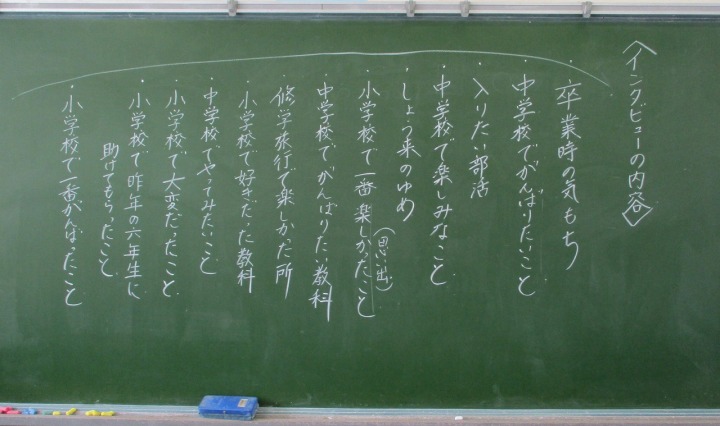 〈インタビューの内容〉
・卒業時の気もち
・中学校でがんばりたいこと
・入りたい部活
・中学校で楽しみなこと
・しょう来のゆめ
・小学校で一番楽しかったこと(思い出)
・中学校でがんばりたい教科
・修学旅行で楽しかった所
・小学校で好きだった教科
・中学校でやってみたいこと
・小学校で大変だったこと
・小学校で昨年の六年生に
助けてもらったこと
・小学校で一番がんばったこと